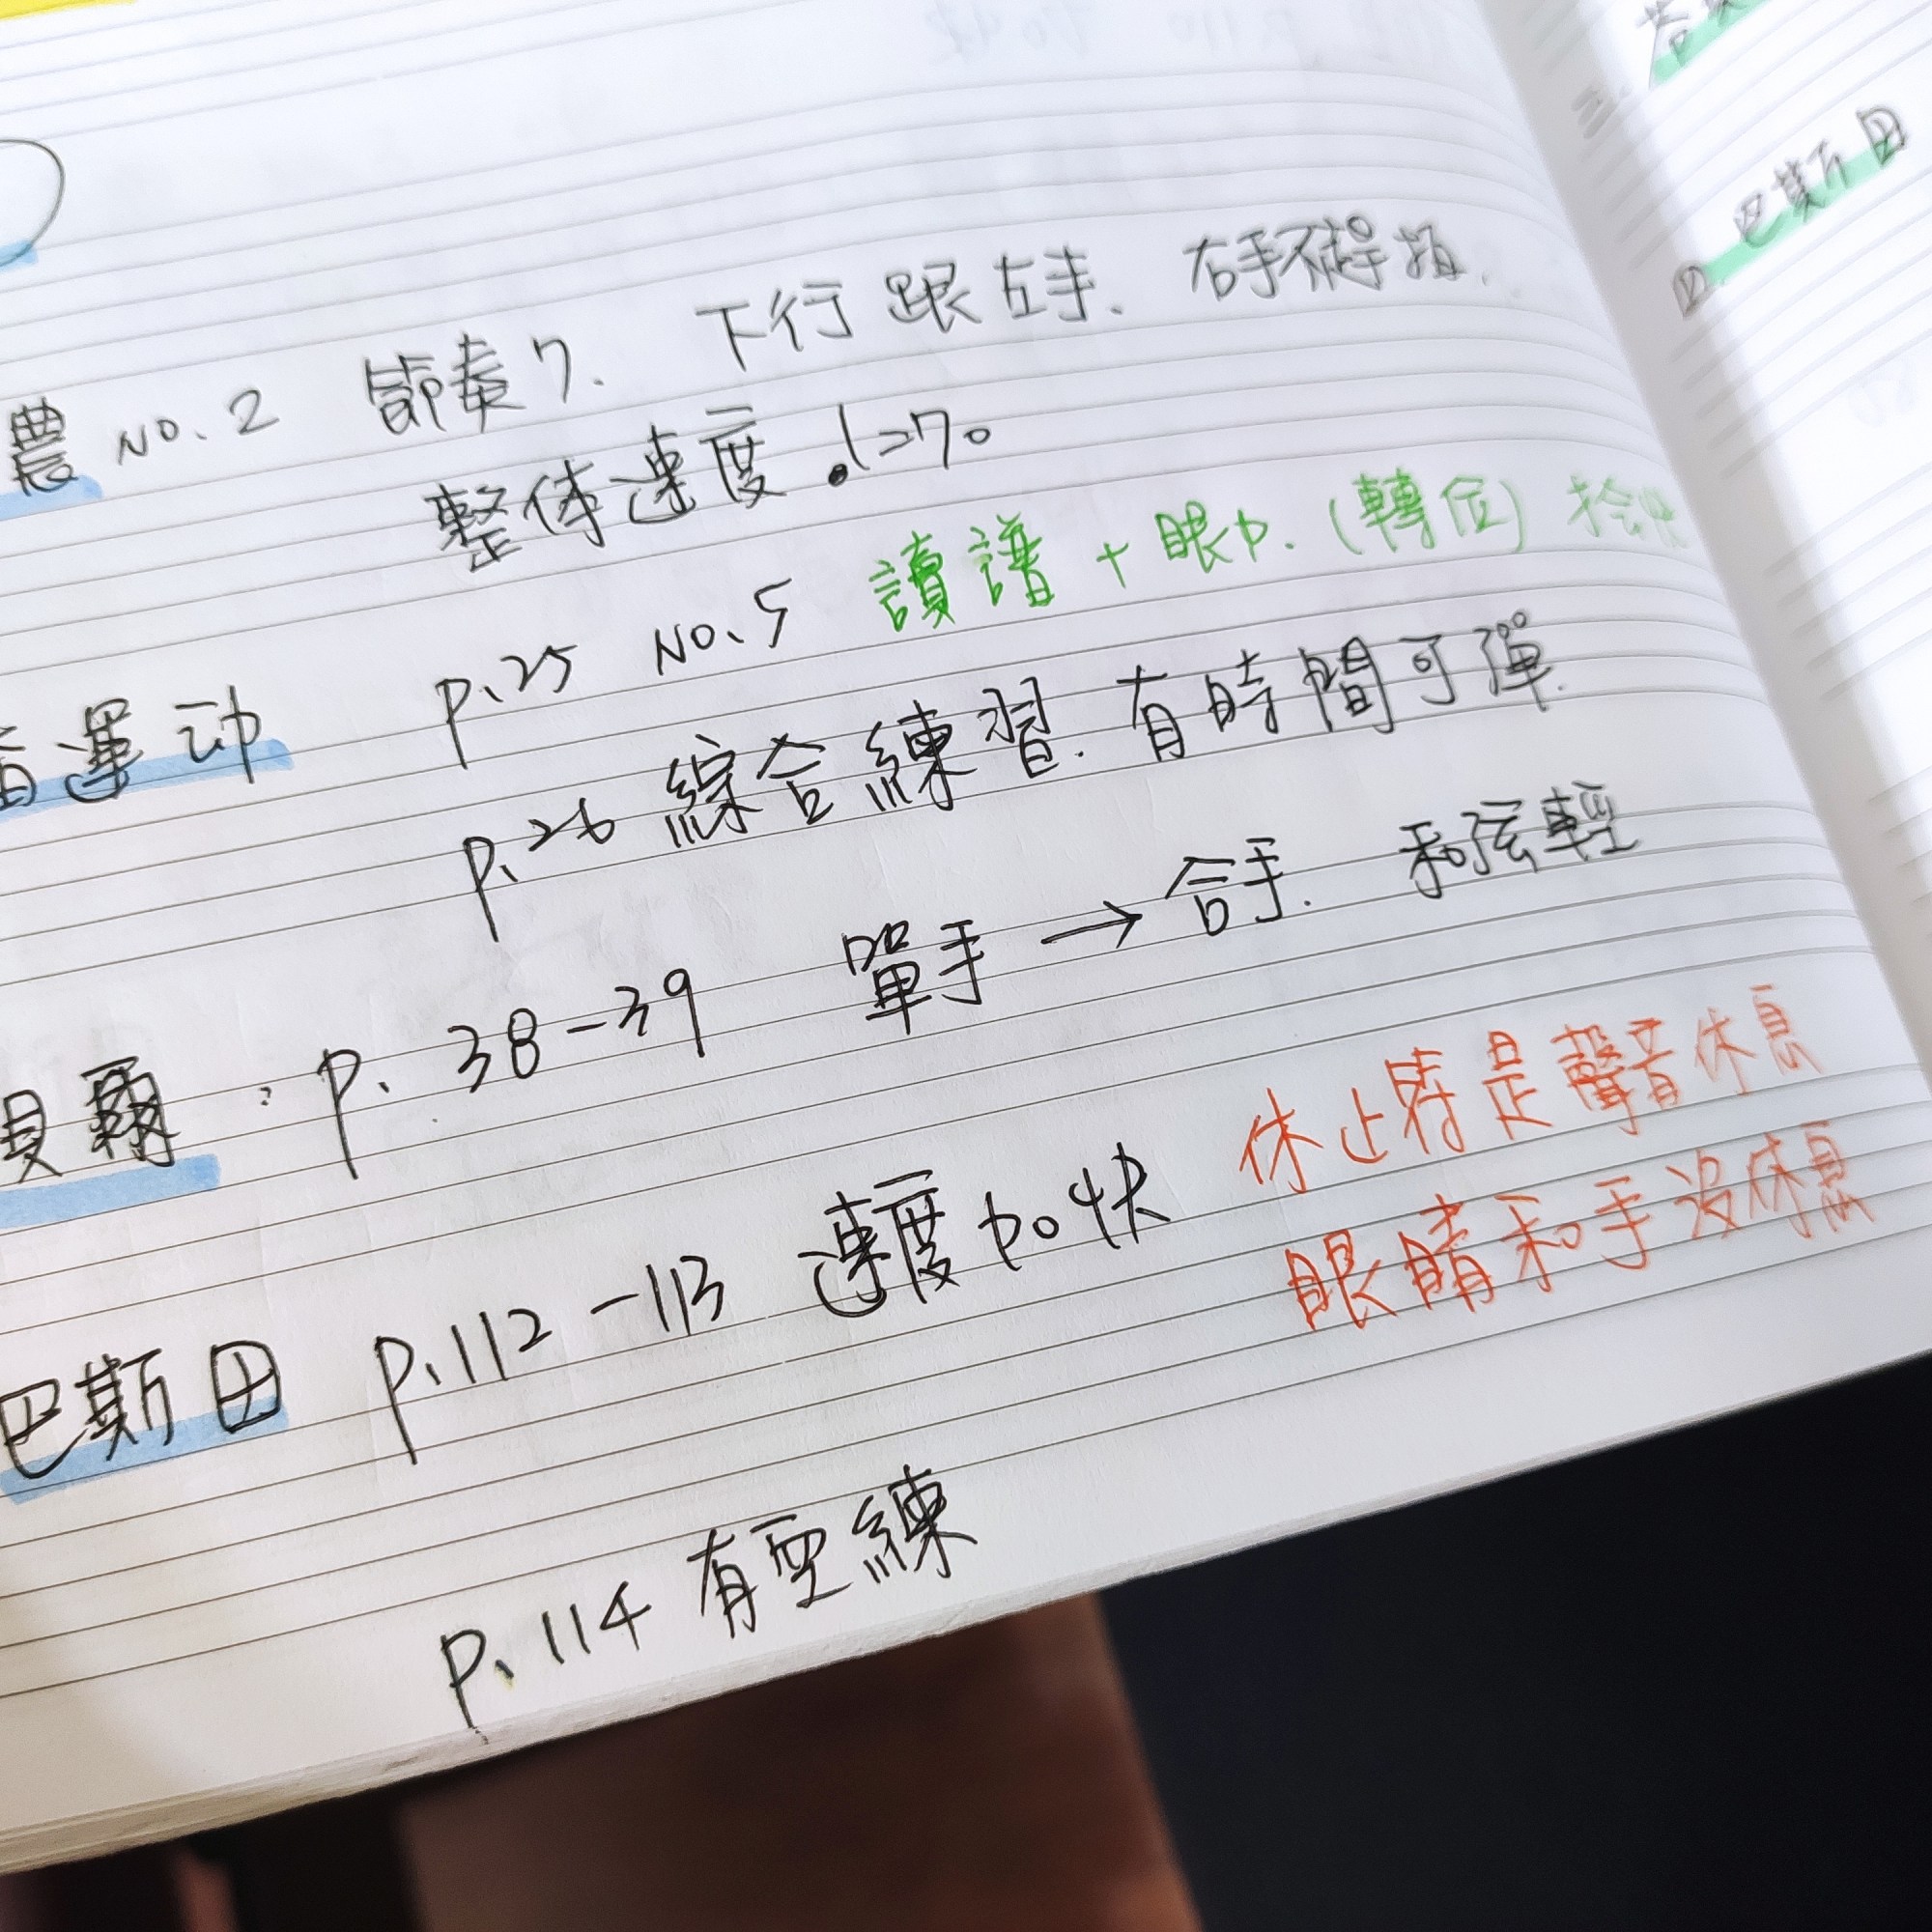 農 NO.2 節奏7. 下行跟左手. 右手不提
整体速度 ♩=70
運动 p.25 NO.5 讀譜+眼力.(轉位)
p.26 綜合練習. 有時間可彈.
貝爾: p.38-39 單手→合手. 和弦輕
巴斯田 p.112-113 速度加快 休止符是聲音休息
眼睛和手沒休息
p.114 有要練
巴斯田